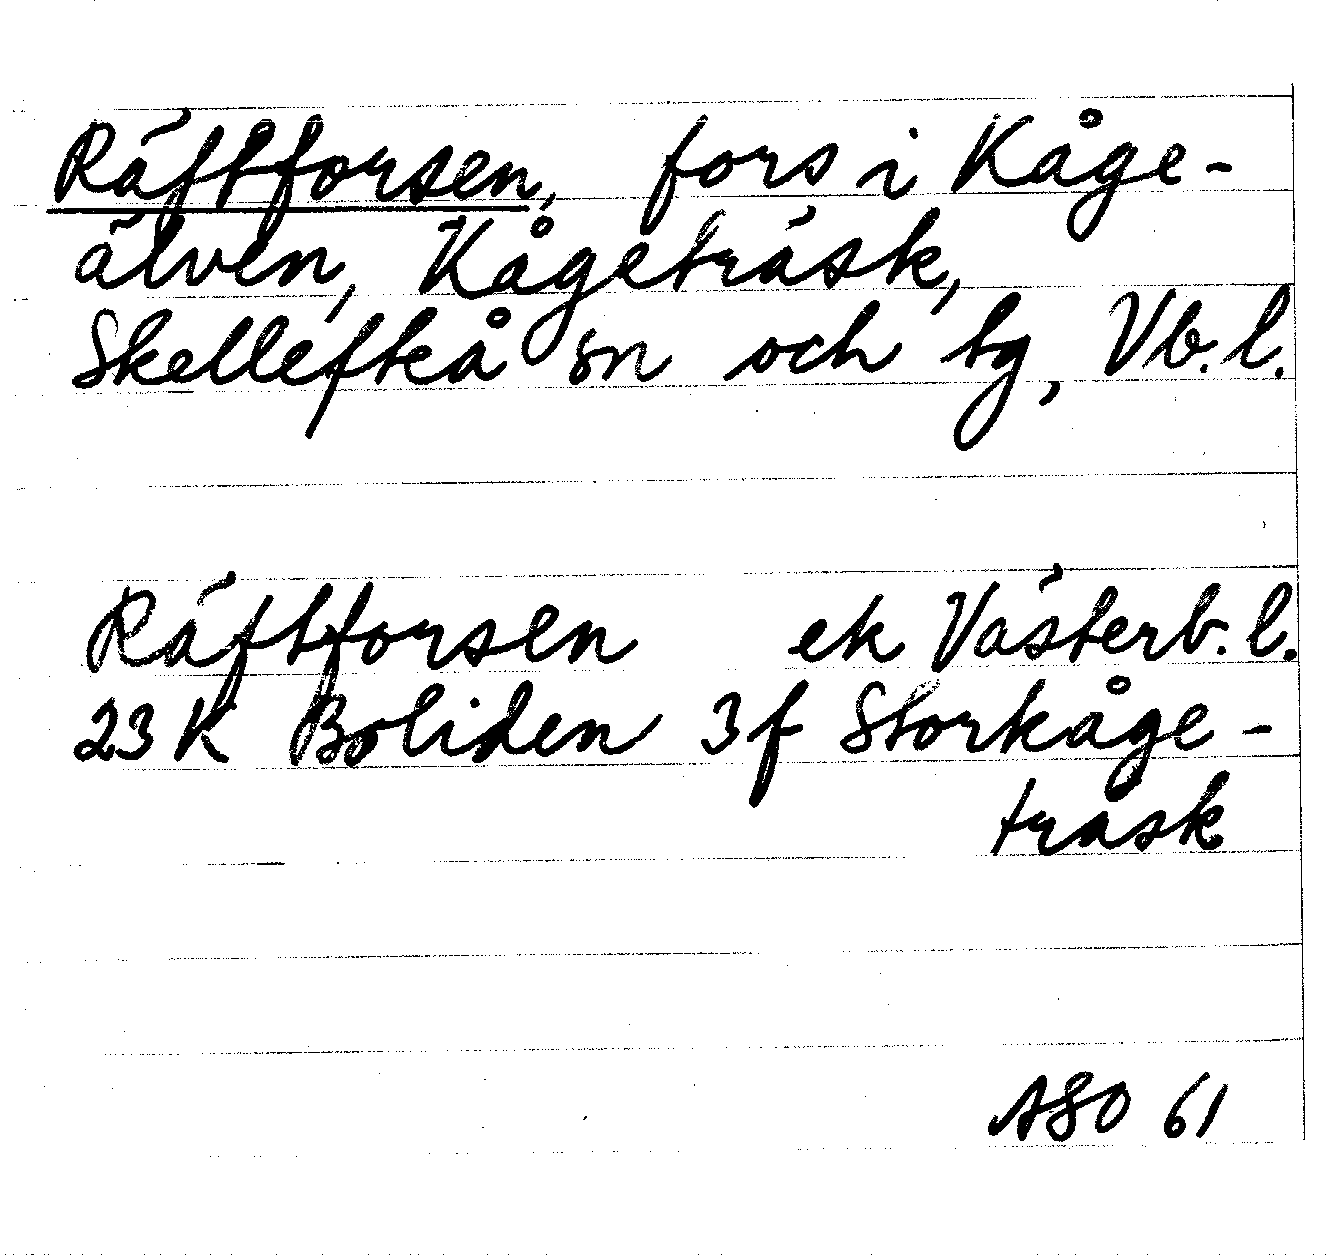 Räftforsen, fors i Kåge-
älven, Kågeträsk,
Skellefteå sn och tg, Vb. l.
Räftforsen ek Västerb. l.
23 K Boliden 3f Storkåge-
träsk
ASO 61